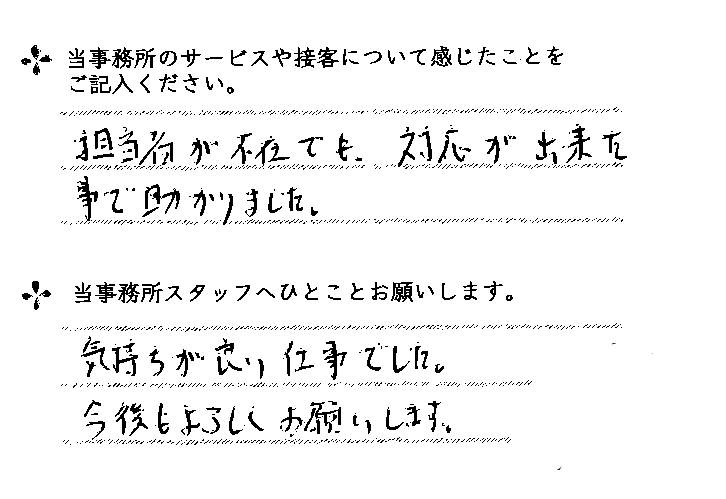 当事務所のサービスや接客について感じたことを
ご記入ください。
担当者が不在でも、対応が出来た
事で助かりました。
当事務所スタッフへひとことお願いします。
気持ちが良い仕事でした。
今後もよろしくお願いします。